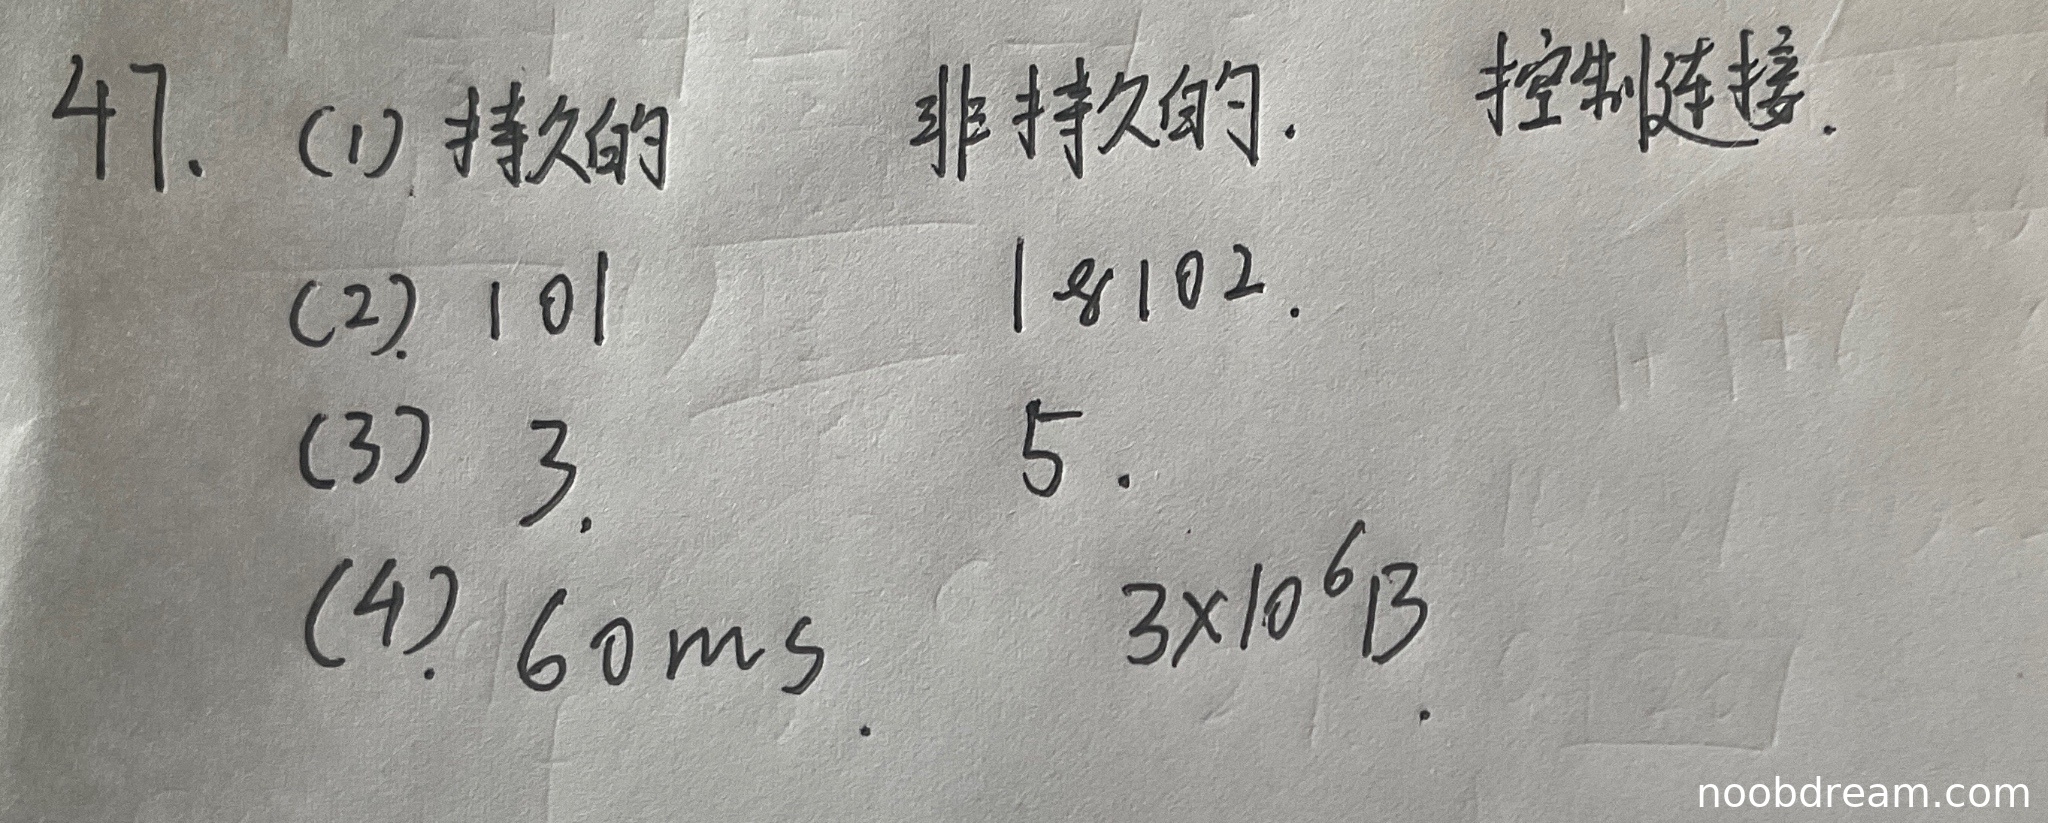 47. (1) 持久的 非持久的. 控制连接.
(2). 101 18102.
(3) 3. 5.
(4). 60ms. 3×10⁶B.
noobdream.com